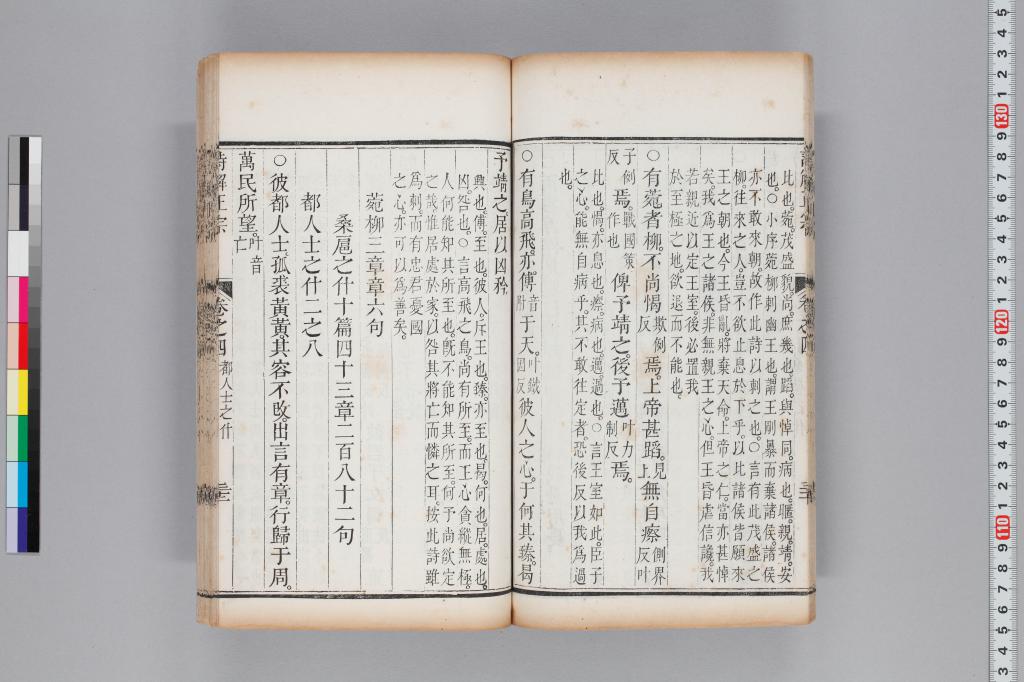 比也。菀。茂盛貌。尚。庶幾也。蹈。與悼同。病也。暱。親。靖。安
也。○小序。菀柳刺幽王也。謂王剛暴而棄諸侯。諸侯
亦不敢來朝。故作此詩以刺之也。○言有此茂盛之
柳。往來之人。豈不欲止息於下乎。以比諸侯皆願來
王之朝也。今王昏亂。將棄天命。上帝之仁。當亦甚悼
矣。我爲王之諸侯。非無親王之心。但王昏虐信讒。我
若親近以定王室。後必置我
於至極之地。欲退而不能也。
○有菀者柳。不尚愒欺例反焉。上帝甚蹈。見上無自瘵側界反叶
子例反焉。戰國策作也俾予靖之。後予邁叶力制反焉。
比也。愒。亦息也。瘵。病也。邁。過也。○言王室如此。臣子
之心。能無自病乎。其不敢往定者。恐後反以我爲過
也。
○有鳥高飛。亦傅音附于天。叶鐵因反彼人之心。于何其臻。曷
予靖之。居以凶矜。
興也。傅。至也。彼人。斥王也。臻。亦至也。曷。何也。居。處也。
凶。咎也。○言高飛之鳥。尚有所至。而王心貪縱無極。
人何能知其所至也。旣不能知其所至。何予尚欲定
之哉。惟居處於家。以咎其將亡而憐之耳。按此詩雖
爲刺。而有忠君憂國
之心。亦可以爲善矣。
菀柳三章章六句
桑扈之什十篇四十三章二百八十二句
都人士之什二之八
○彼都人士。狐裘黃黃。其容不改。出言有章。行歸于周。
萬民所望。叶音亡
詩解正宗 卷之四 都人士之什